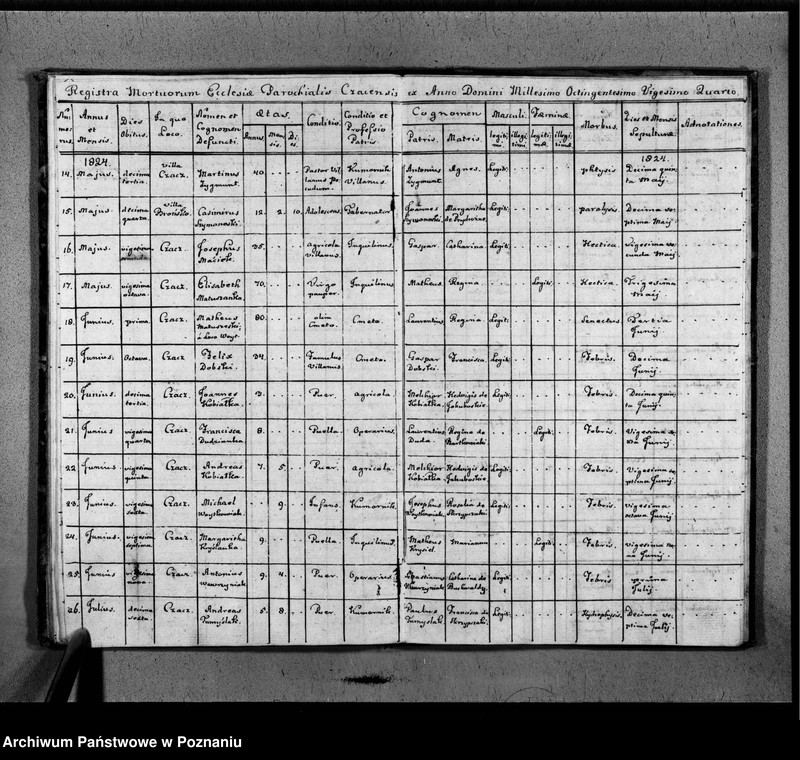 Registra Mortuorum Ecclesiæ Parochialis Czacensis ex Anno Domini Millesimo Octingentesimo Vigesimo Quarto.
Nu: me: rus. Annus et Mensis. Dies Obitus. In quo Loco. Nomen et Cognomen Defuncti. Ætas. Annus. Men: sis. Di: es. Conditio. Conditio et Professio Patris. Cognomen Patris. Matris. Masculi. legiti: mi. illegiti: mi. Fæminæ. legiti: mæ. illegi: timæ. Morbus. Dies et Mensis Sepulturæ. Adnotationes.
1824. 1824.
14. Majus. decima tertia. villa Czacz. Martinus Zygmunt. 40. Pastor Vil: lanus Kumornik Villanus. Antonius Zygmunt. Agnes. Legit: phtysis Decima quin: ta Maij.
15. Majus. decima quarta. villa Casimirus Szymanski. 12. 2. 10. Adolescens. Gubernator Joannes Szymanski. Margaritha Legit: paralysis Decima se: ptima Maij
16. Majus. vigesima Czacz. Josephus 35. agricola villanus. Inquilinus. Gaspar. Catharina. Legit: Hectica. Vigesima se: cunda Maij.
17. Majus. vigesima octava. Czacz. Elisabeth Matuszanka. 70. Virgo pauper. Inquilinus Matheus. Regina. Legit: Hectica. Trigesima Maij.
18. Junius. prima. Czacz. Matheus 80. olim Cmeto. Cmeto. Laurentius. Regina Legit: Senectus. Tertia Junij.
19. Junius. Octava. Czacz Felix Dobski. 34. Famulus Villanus. Cmeto. Gaspar Dobski. Francisca. Legit: Febris. Decima Junij.
20. Junius. decima tertia. Czacz. Joannes Kobiałka. 3. Puer. agricola. Melchior Kobiałka. Hedwigis de Jakuboskie. Legit: Febris. Decima quin: ta Junij.
21. Junius vigesima quarta Czacz. Francisca Dudzianka 8. Puella. Operarius. Laurentius Duda. Regina de Legit: Febris. Vigesima Junij.
22. Junius vigesima quinta Czacz. Andreas Kobiałka. 7. 5. Puer. agricola. Melchior Kobiałka. Hedwigis de Jakuboskie. Legit: Febris. Vigesima se: ptima Junij.
23. Junius. vigesima sexta. Czacz. Michael Woytkowiak. 9. Infans. Kumornik. Josephus Woytkowiak. Rosalia de Legit: Febris. vigesima octava Junij
24. Junius. vigesima septima. Czacz. Margaritha 9. Puella Inquilinus. Matheus Marianna. Legit: Febris. vigesima no: na Junij.
25. Junius vigesima nona. Czacz Antonius Wawrzyniak. 9. 4. Puer. Operarius Wawrzyniak. Catharina de Legit: Febris prima Julij.
26. Julius. decima sexta. Czacz. Andreas Pumyślak. 5. 8. Puer. Kumornik. Paulus Pumyslak. Francisca de Legit: Decima se: ptima Julij.
Archiwum Państwowe w Poznaniu